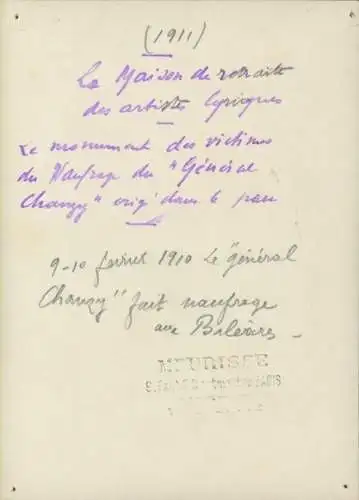 (1911)
La Maison de retraite
des artistes lyriques
Le monument des victimes
du Naufrage du "Général
Chanzy" érigé dans le parc
9-10 février 1910 Le "général
Chanzy" fait naufrage
aux Baléares
MEURISSE